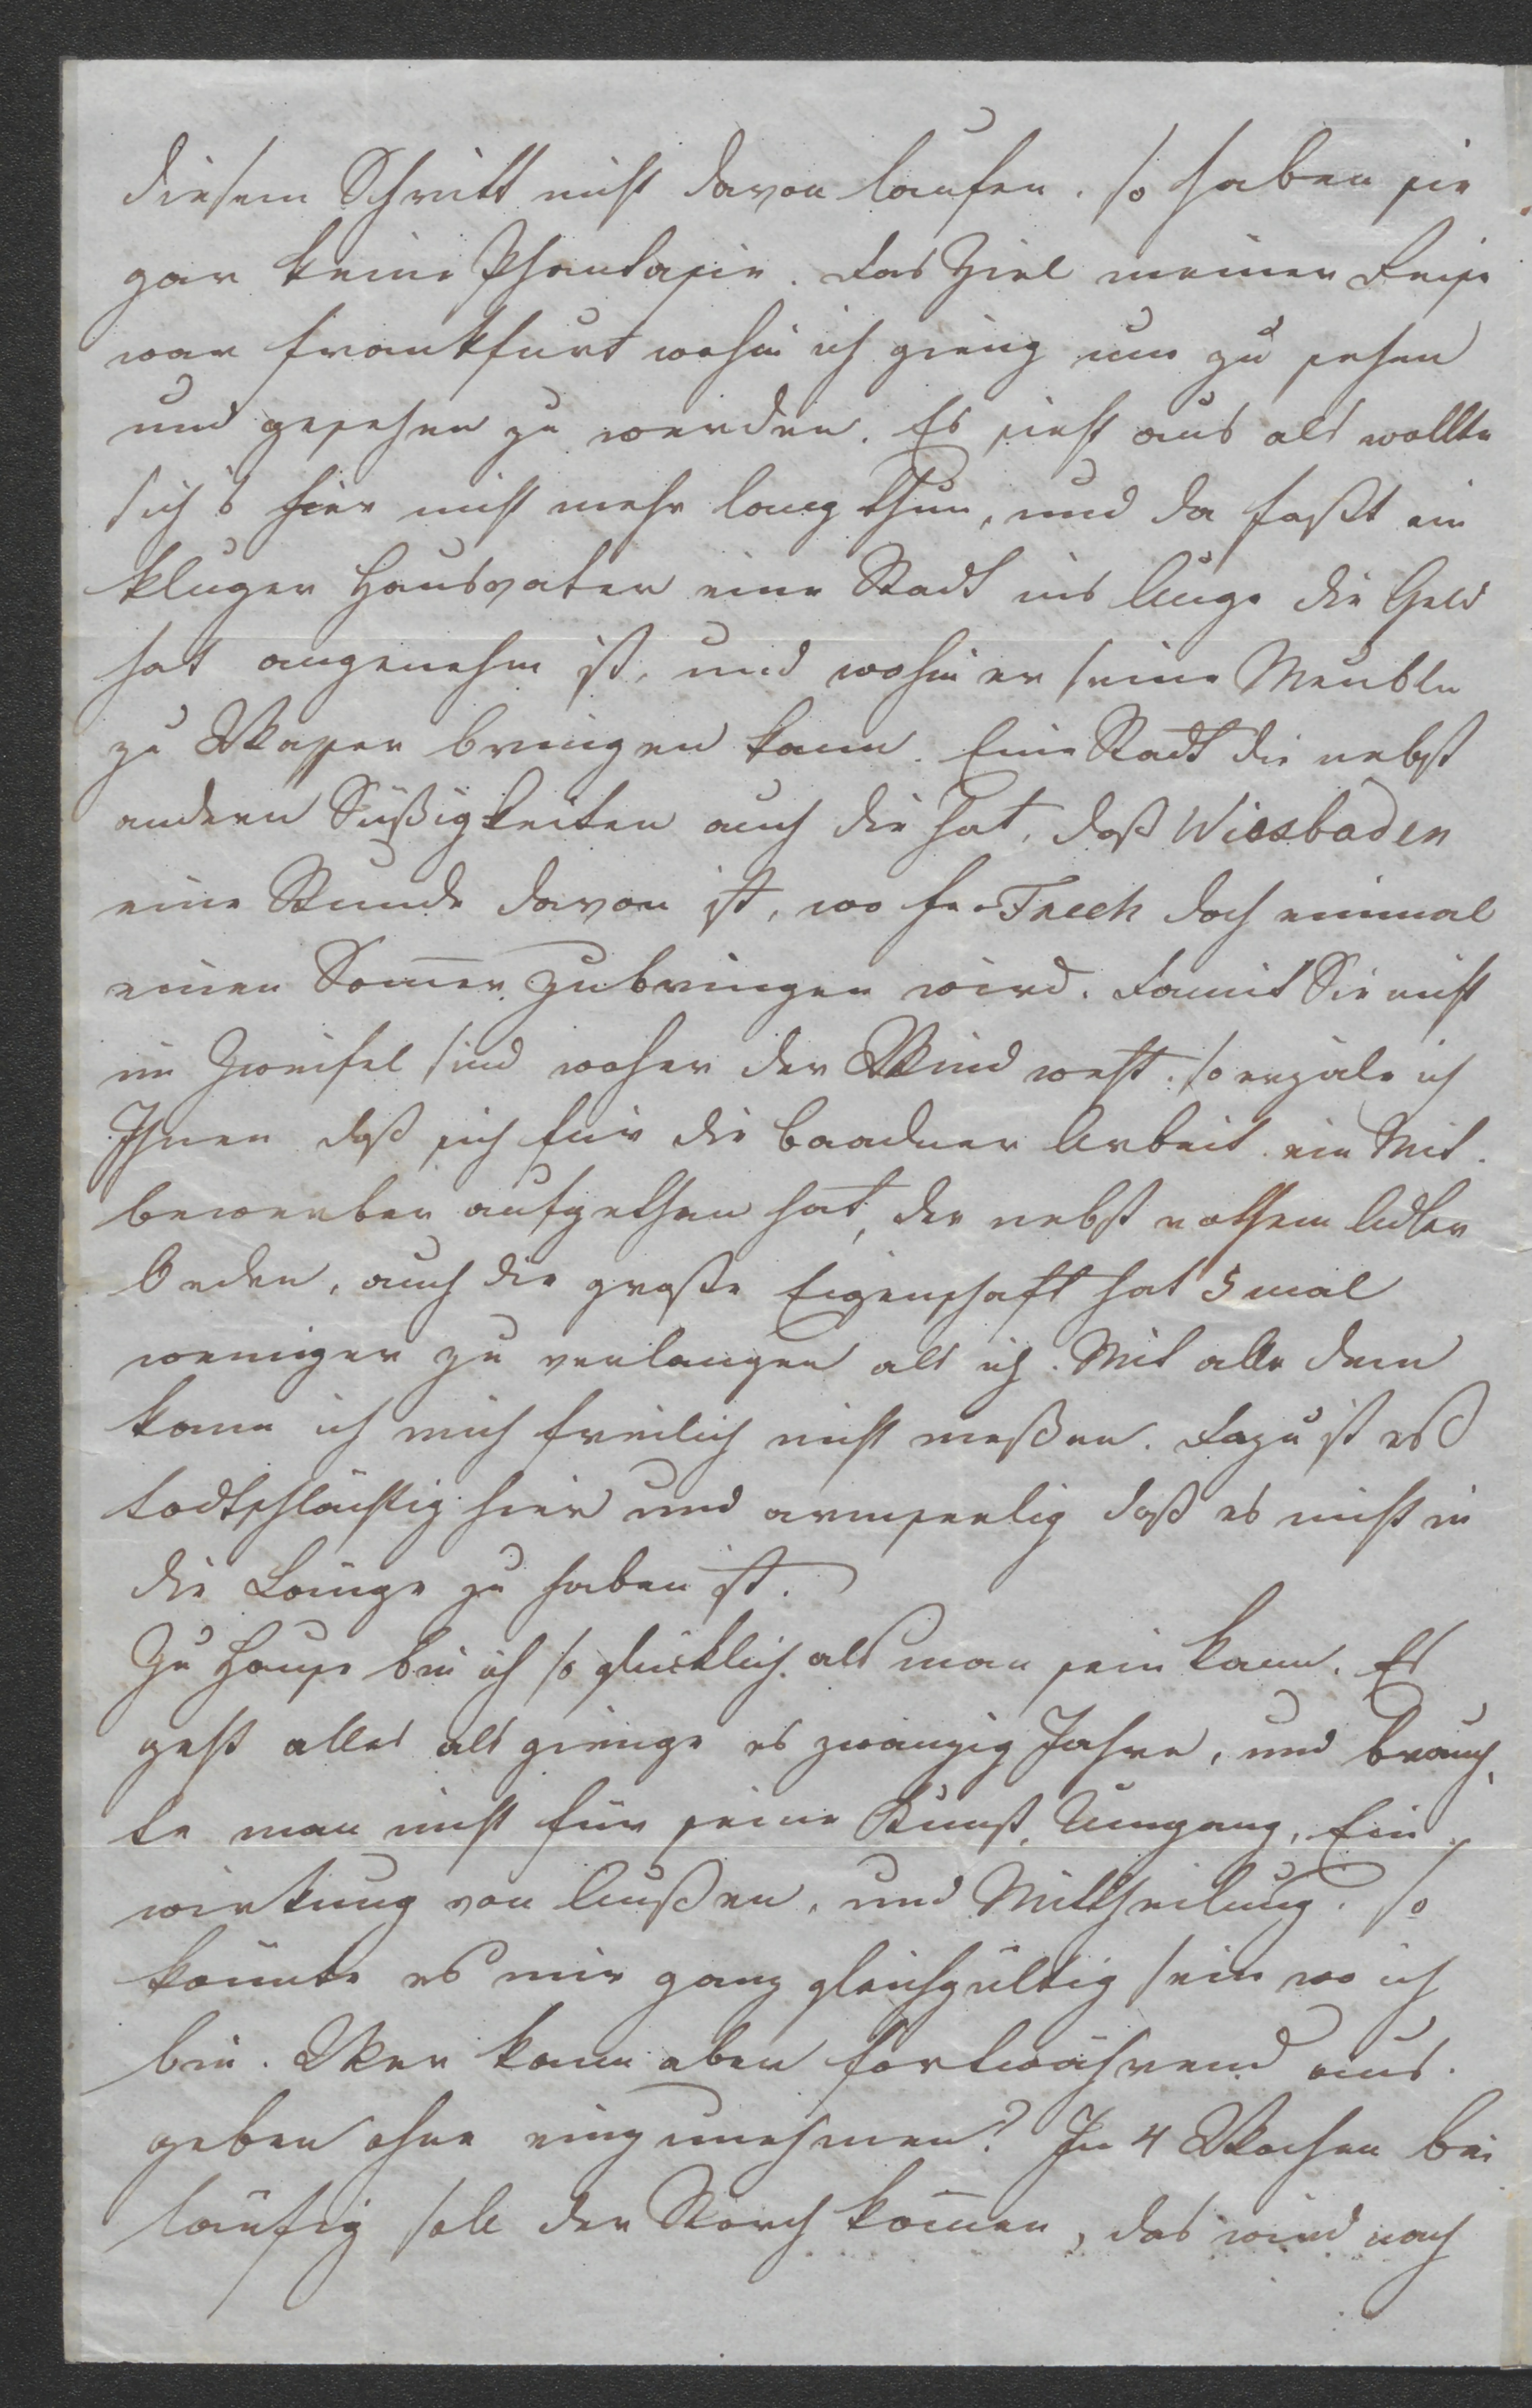 diesem Schritt nicht davon laufen. so haben sie
gar keine Phantasie. Das Ziel meiner Reise
war Frankfurt wohin ich gieng um zu sehen
und gesehen zu werden. Es sieht aus als wollte
sich's hier nicht mehr lang thun, und da faßt ein
kluger Hausvater eine Stadt ins Auge die Geld
hat angenehm ist, und wohin er seine Meubln
zu Wasser bringen kann. Eine Stadt die nebst
andern Süßigkeiten auch die hat, daß Wiesbaden
eine Stunde davon ist, wo Fr. Frech doch einmal
einen Som̄er zubringen wird. Damit Sie nicht
im Zweifel sind woher der Wind weht. so erzäle ich
Ihnen daß sich für die baadner Arbeit ein Mit-
bewerber aufgethan hat, der nebst rothem Adler
Orden, auch die große Eigenschaft hat 5 mal
weniger zu verlangen als ich. Mit alle dem
kann ich mich freilich nicht meßen. Dazu ist es
todtschlächtig hier und armseelig daß es nicht in
die Länge zu haben ist.
Zu Hause bin ich so glücklich als man sein kann. Es
geht alles als gienge es zwanzig Jahre, und brauch-
te man nicht für seine Kunst, Umgang, Ein-
wirkung von Außen, und Mittheilung. so
könnte es mir ganz gleichgültig sein wo ich
bin. Wer kann aber fortwährend aus-
geben ohne einzunehmen? In 4 Wochen bei
läufig soll der Storch kom̄en, das wird noch